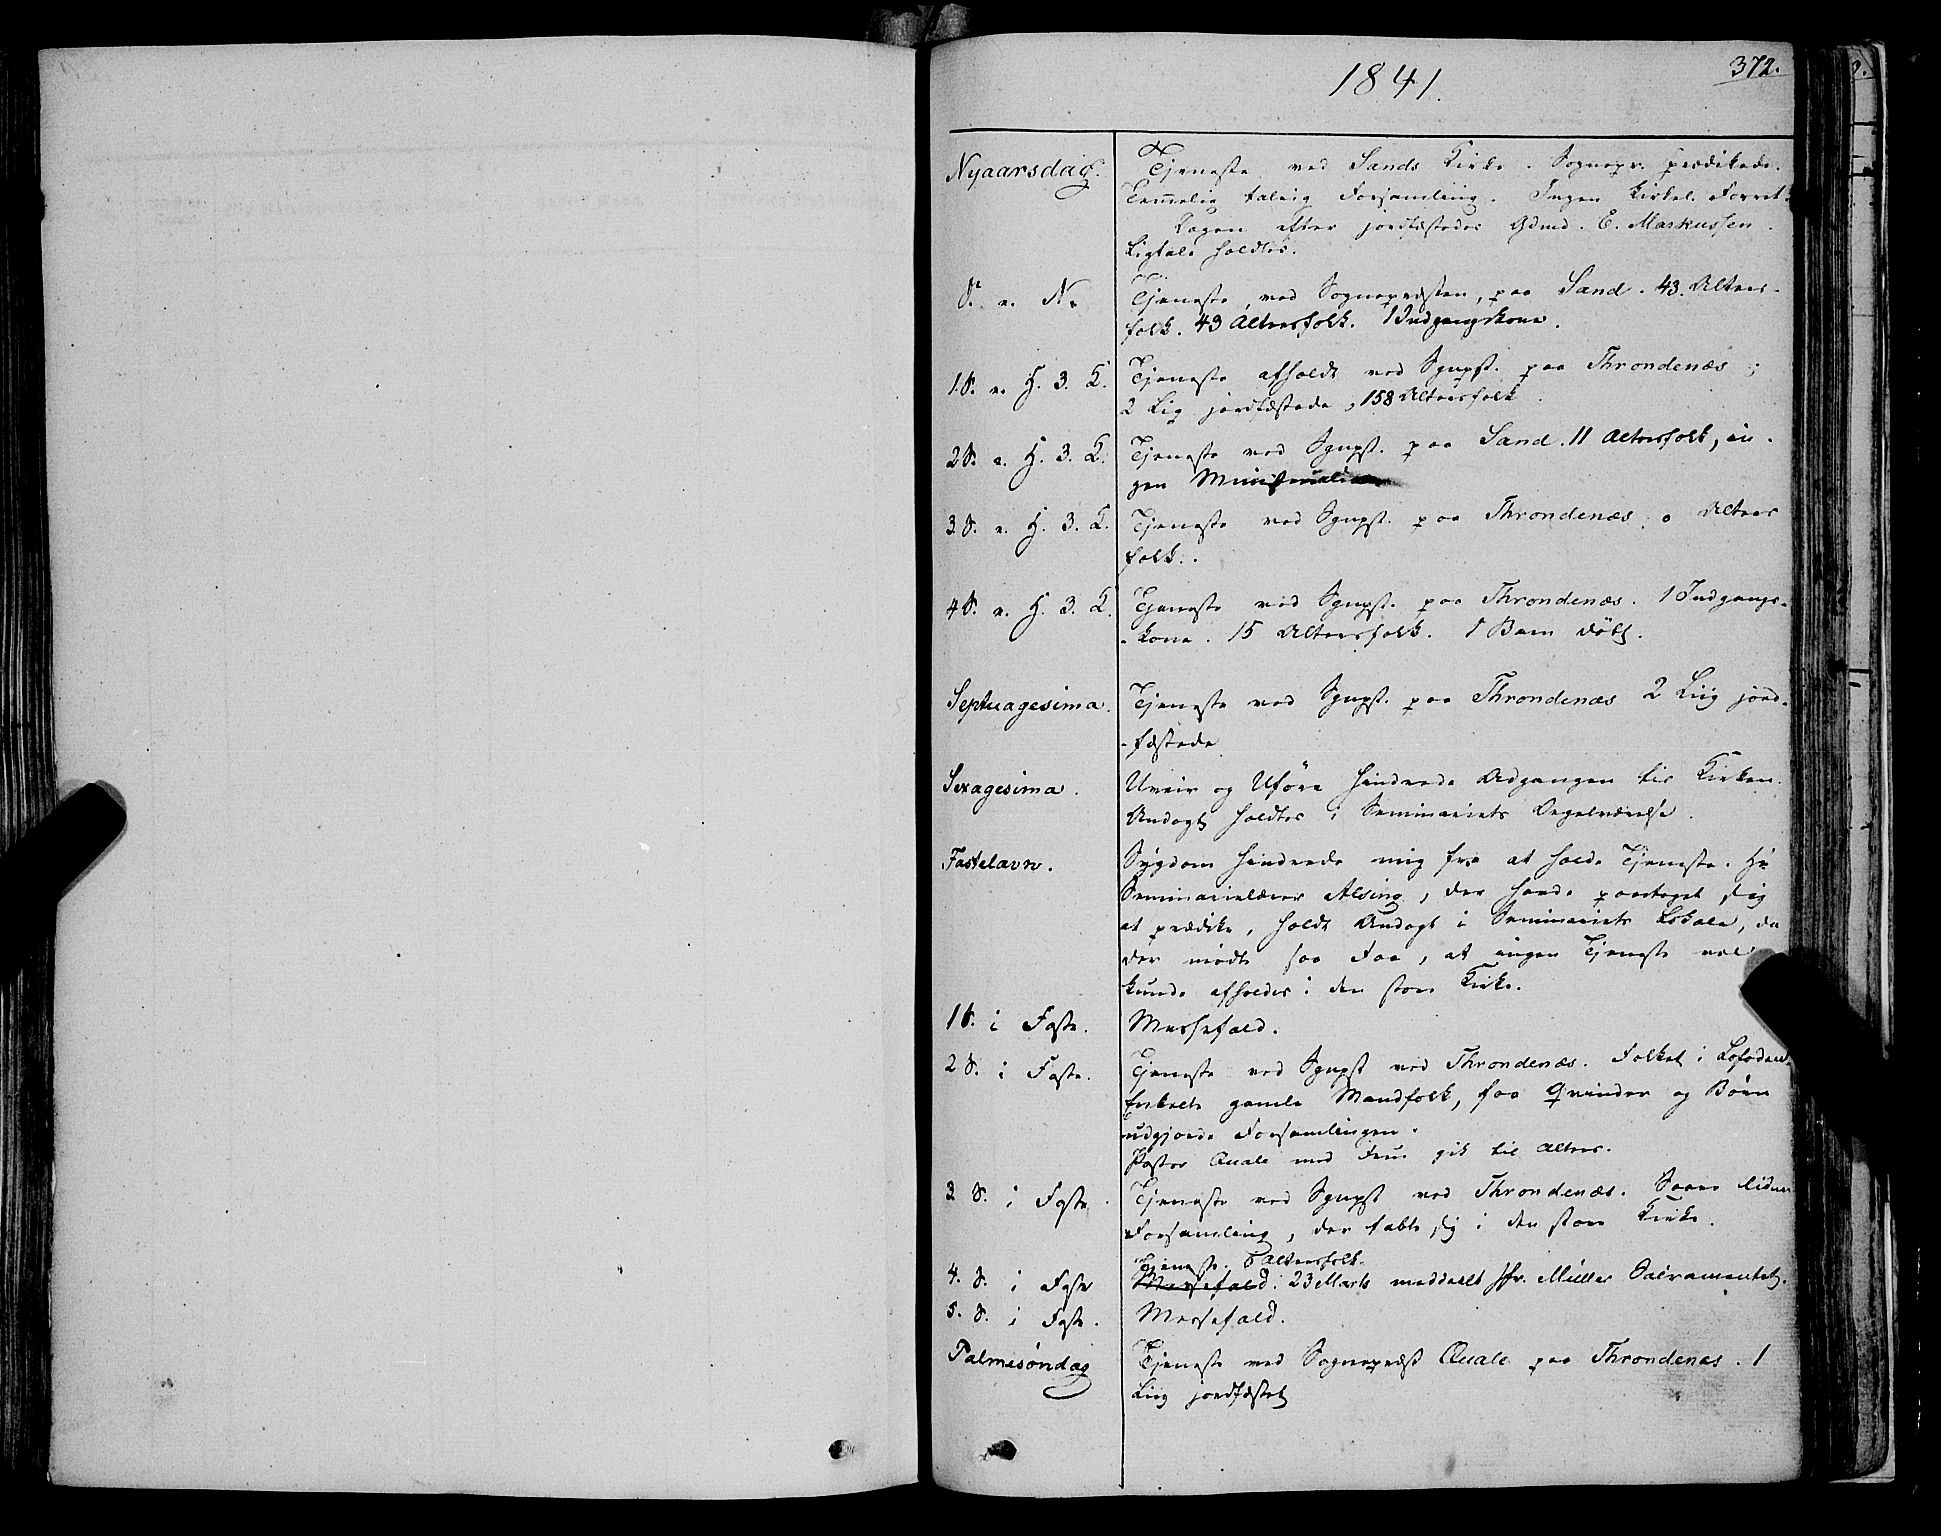 372.
1841.
Nyaarsdag. Tjeneste ved Sands Kirke. Sognepr. prædikede.
Temmelig talrig Forsamling. Ingen Kirkel. Forret.
Dagen efter jordfæstedes Gdmd. E. Markussen.
Ligtale holdtes.
S. e. N. Tjeneste, ved Sognepræsten, paa Sand. 43. Alters-
folk. 43 Altersfolk. 1 Indgangskone.
1 S. e. H. 3. K. Tjeneste afholdt ved Sgnpst. paa Throndenæs;
2 Lig jordfæstede, 158 Altersfolk.
2 S. e. H. 3. K. Tjeneste ved Sgnpst. paa Sand. 11 Altersfolk, in-
gen Ministerialier
3 S. e. H. 3. K. Tjeneste ved Sgnpst. paa Throndenæs; 0 Alters
folk.
4 S. e. H. 3. K. Tjeneste ved Sgnpst. paa Throndenæs. 1 Indgangs-
-kone. 15 Altersfolk. 1 Barn døbt.
Septuagesima. Tjeneste ved Sgnpst. paa Throndenæs 2 Liig jord-
-fæstede
Sexagesima. Uveir og Uføre hindrede Adgangen til Kirken.
Andagt holdtes i Seminariets Orgelværelse.
Fastelavn. Sygdom hindrede mig fra at holde Tjeneste. Hr
Seminarielærer Alsing, der havde paataget sig
at prædike, holdt Andagt i Seminariets Lokale, da
der mødte saa Faa, at ingen Tjeneste vel
kunde afholdes i den store Kirke.
1 S. i Faste. Messefald.
2 S. i Faste. Tjeneste ved Sgnpst ved Throndenæs. Folket i Lofoden.
Enkelte gamle Mandfolk, faa Qvinder og Børn
udgjorde Forsamlingen.
Pastor Quale med Frue gik til Alters.
3 S. i Faste. Tjeneste ved Sgnpst ved Throndenæs. Saare liden
Forsamling, der tabte sig i den store Kirke.
Tjeneste. 6 Altersfolk.
4. S. i Faste Messefald. 23 Marts meddeelt Jfr. Müller Sacramentet.
5. S. i Faste. Messefald.
Palmesøndag Tjeneste ved Sognepræst Quale paa Throndenæs. 1
Liig jordfæstet